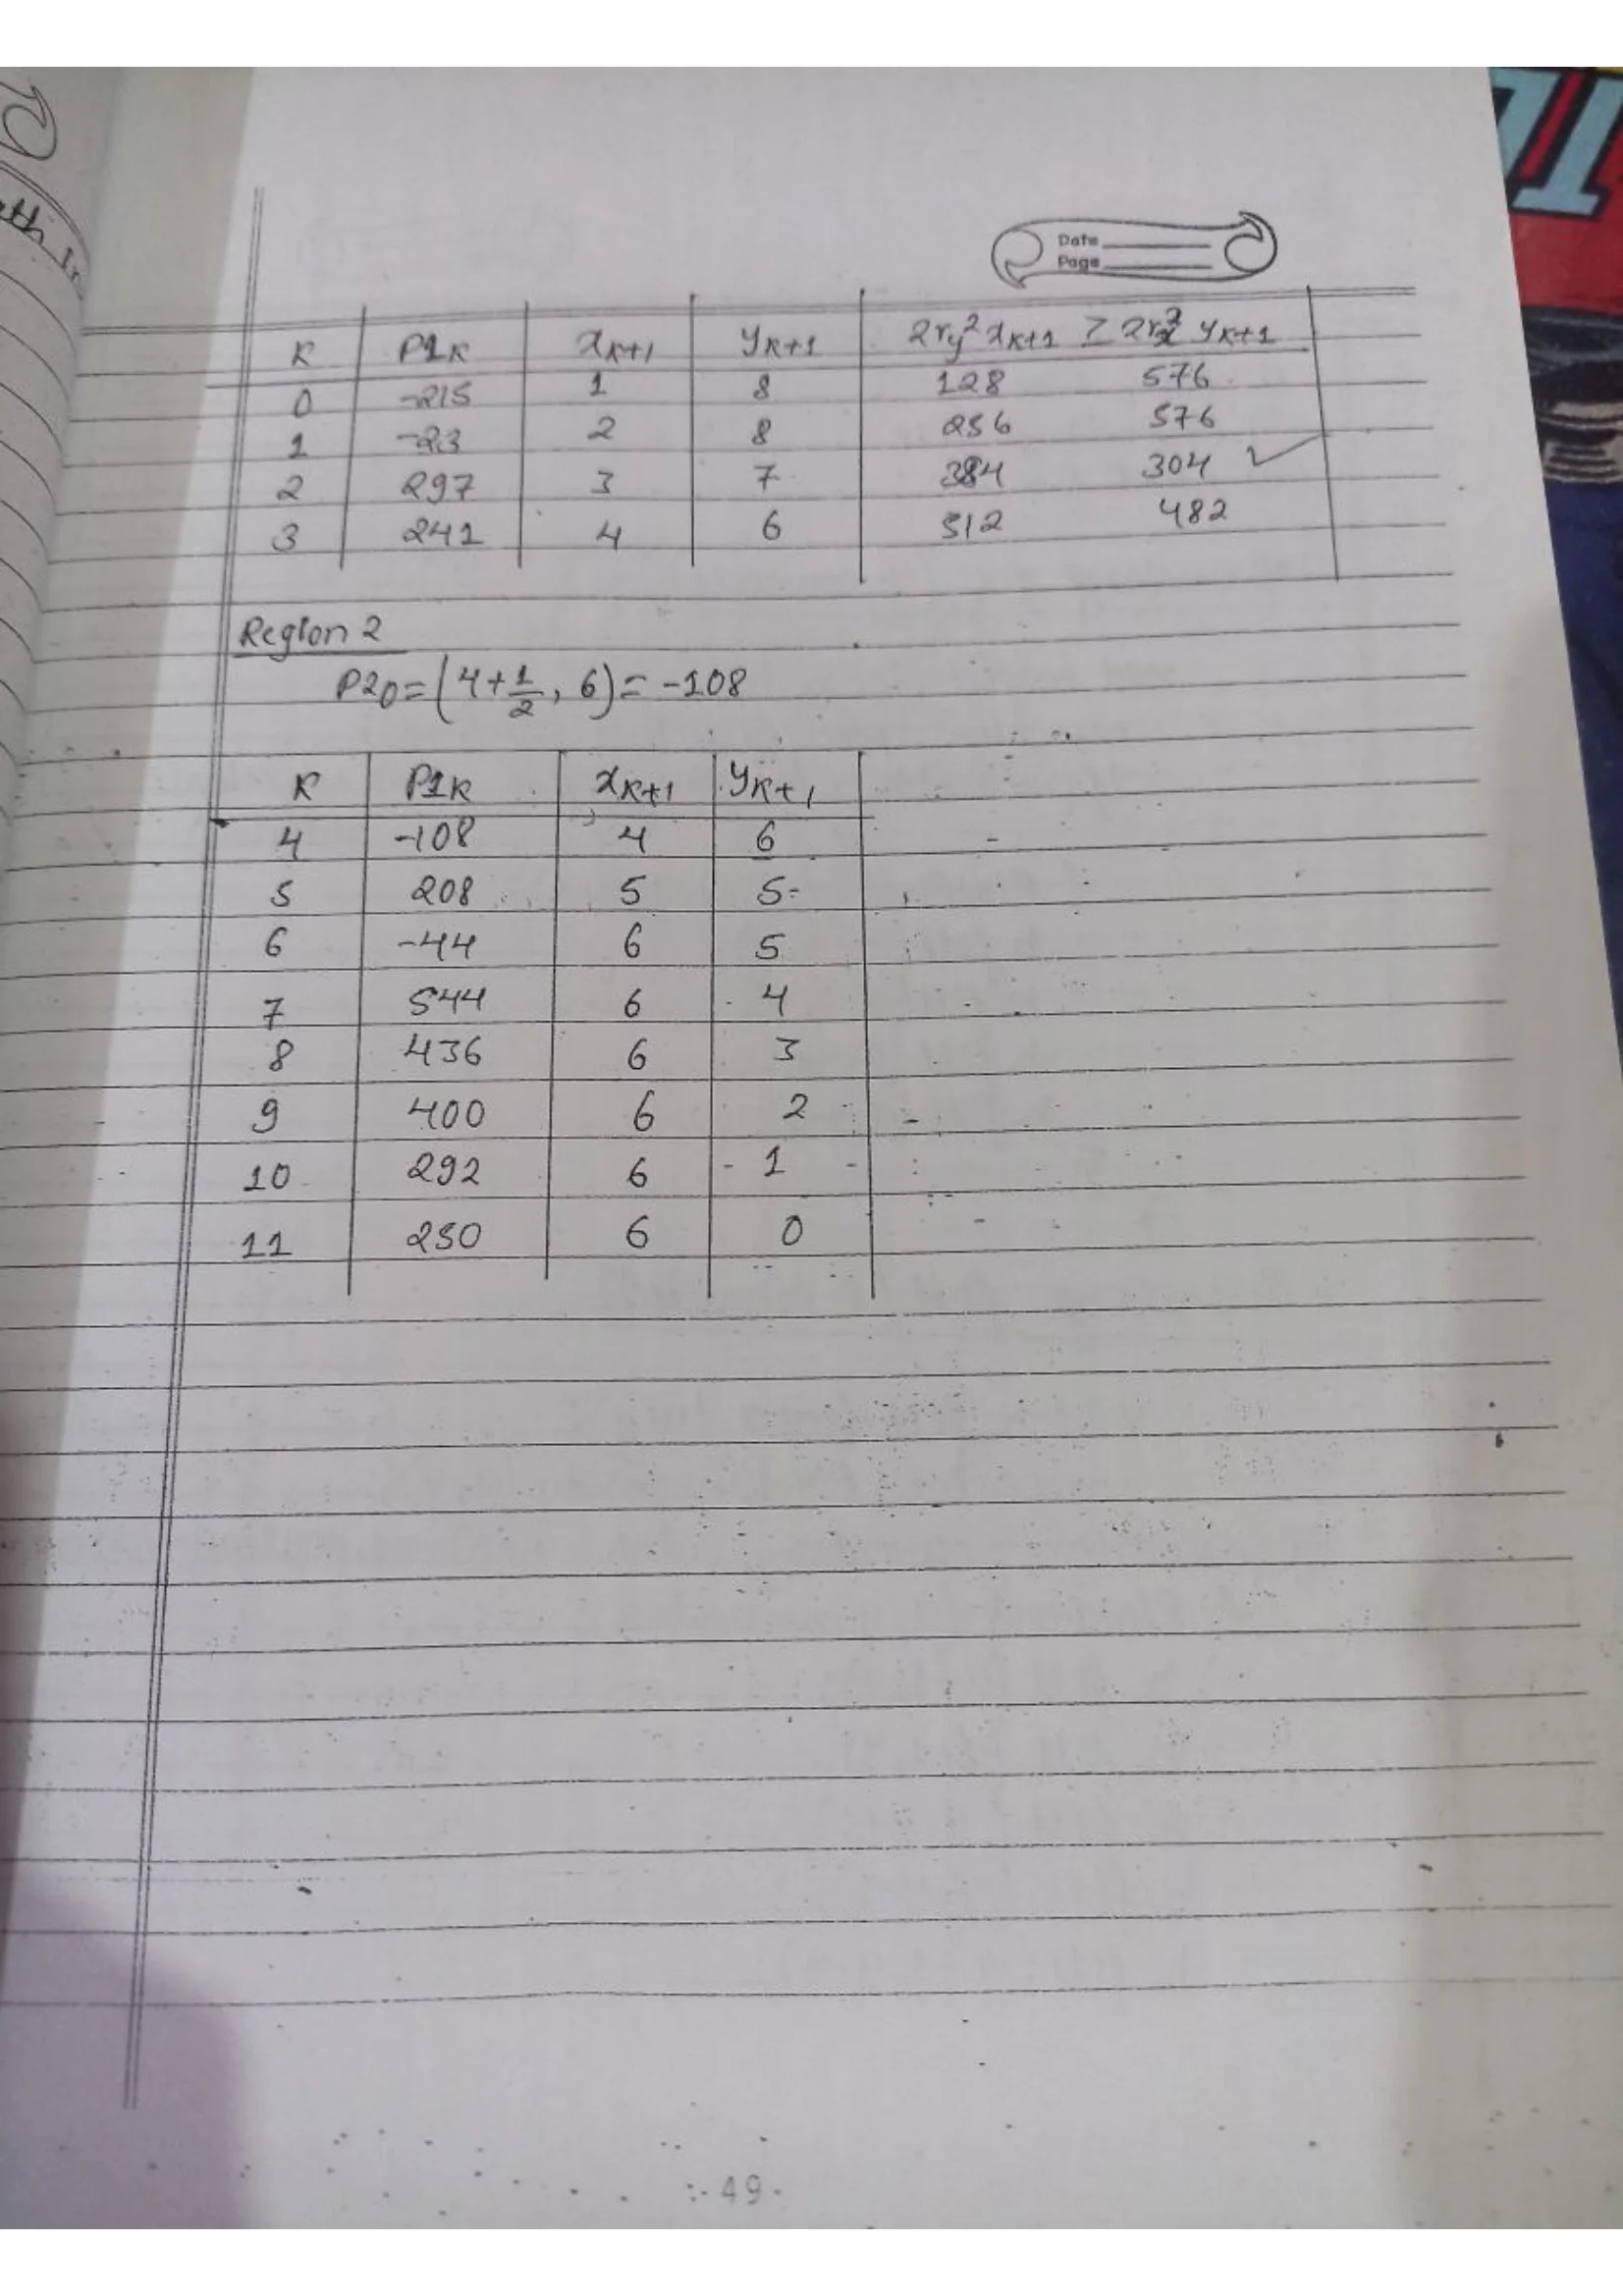 Date
Page
K P1K xK+1 yK+1 2ry² xK+1 ≥ 2rx² yK+1
0 -215 1 8 128 576
1 -23 2 8 256 576
2 297 3 7 384 304 ✓
3 241 4 6 512 482
Region 2
P20 = (4+1/2, 6) = -108
K P1K xK+1 yK+1
4 -108 4 6
5 208 5 5
6 -44 6 5
7 544 6 4
8 436 6 3
9 400 6 2
10 292 6 1
11 250 6 0
49